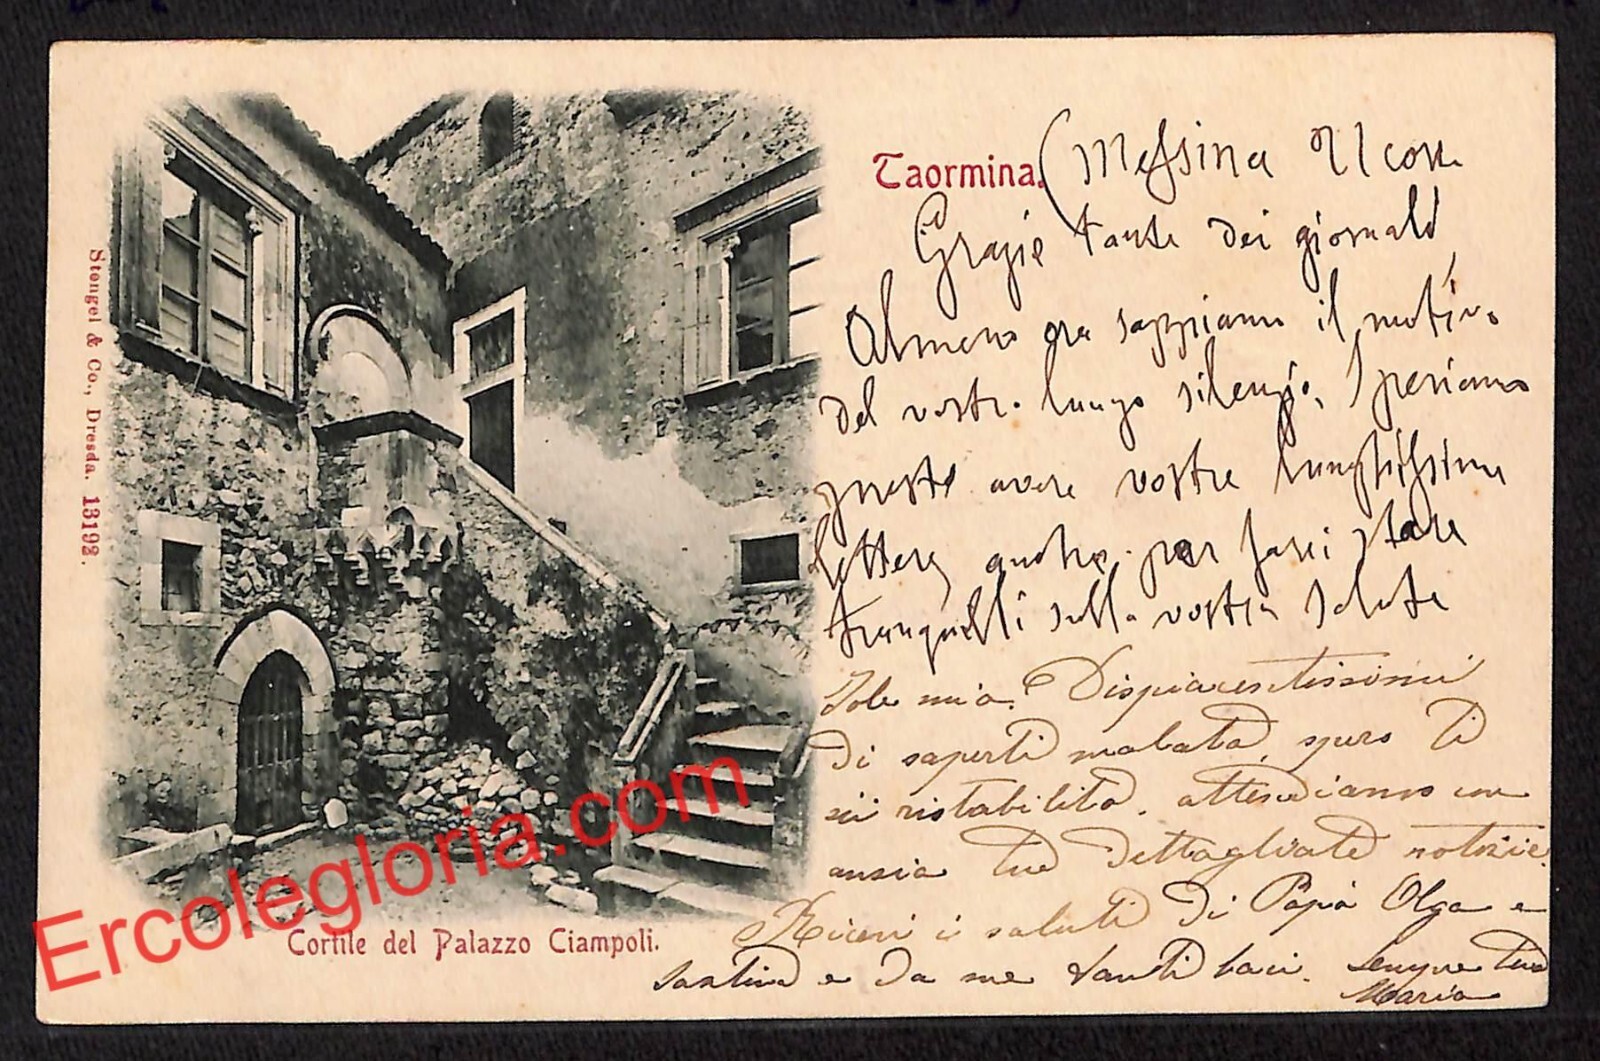 Taormina.
(Messina 21 corr.
Grazie tante dei giornali
Almeno ora sappiamo il motivo
del vostro lungo silenzio, Speriamo
presto avere vostre lunghissime
lettere, anche per farci stare
tranquilli sulla vostra salute
Iole mia. Dispiacentissimi
di saperti malata, spero ti
sii ristabilita. attendiamo con
ansia tue dettagliate notizie.
Ricevi i saluti di Papà Olga e
Santina e da me tanti baci. Sempre tua
Maria
Stengel & Co., Dresda. 13192.
Cortile del Palazzo Ciampoli.
Ercolegloria.com